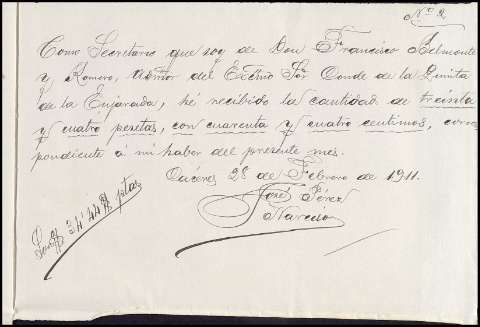 Nº 2
Como Secretario que soy de Don Francisco Belmonte
y Romero, tutor del Excmo Sor Conde de la Quinta
de la Enjarada, hé recibido la cantidad de treinta
y cuatro pesetas, con cuarenta y cuatro centimos, corres
pondiente á mi haber del presente mes.
Cáceres 28 de Febrero de 1911.
José Pérez
Narciso
34'44 ptas